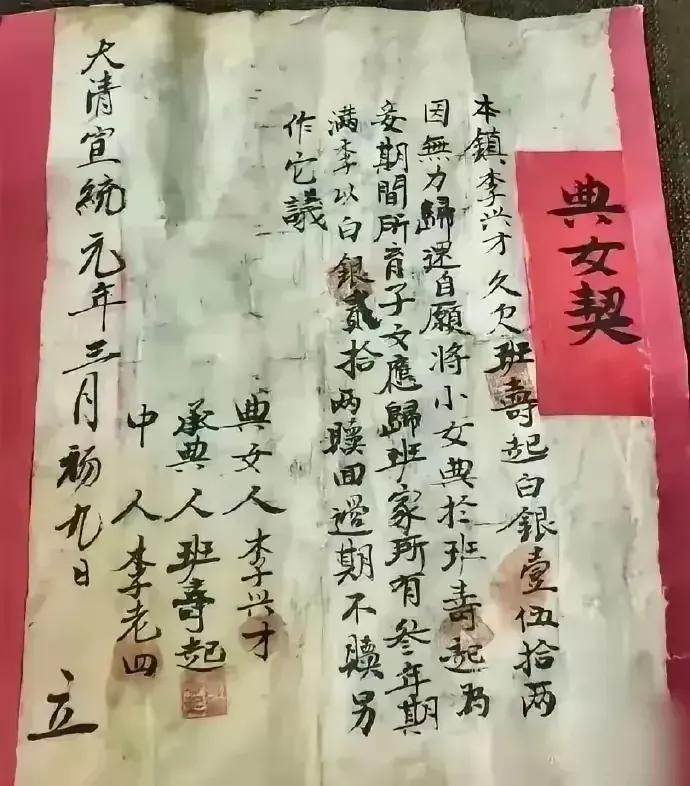 典女契
本鎮李兴才久欠班壽起白銀壹伍拾两
因無力歸还自願將小女典於班壽起為
妾期間所育子女應歸班家所有叁年期
满李以白銀貳拾两贖回過期不贖另
作它議
典女人李兴才
承典人班壽起
中人李老四
大清宣統元年三月初九日 立